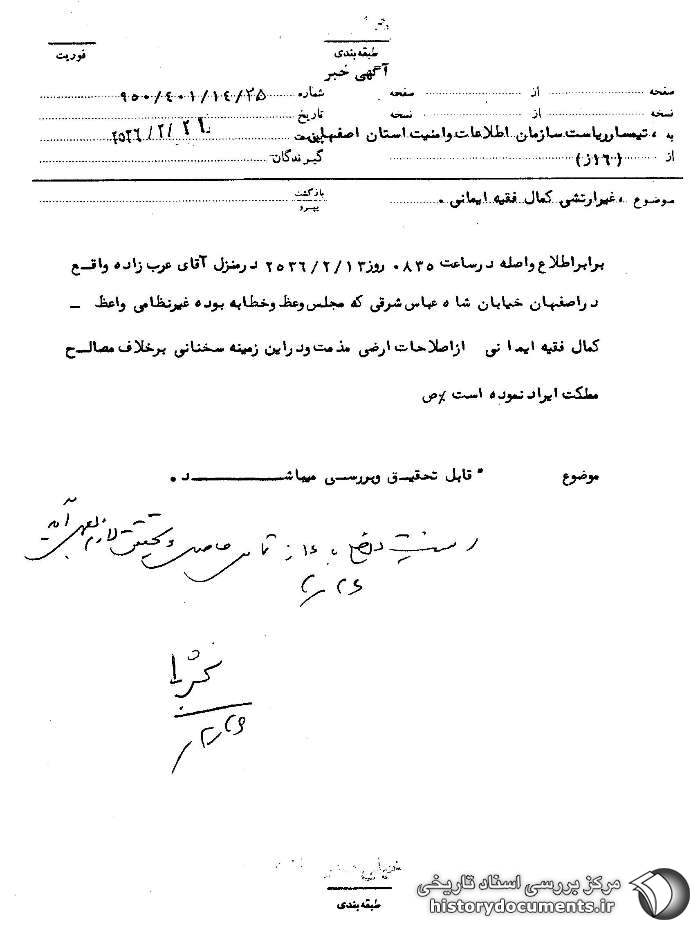 طبقه‌بندی
فوریت
آگهی خبر
صفحه از صفحه شماره ۹۵۰/۴۰۱/۱۴/۲۵
نسخه از نسخه تاریخ
به تیمسار ریاست سازمان اطلاعات و امنیت استان اصفهان پیوست ۲۵۳۶/۲/۲۹
از (۱۶ز) گیرندگان
موضوع غیرارتشی کمال فقیه ایمانی . بازگشت
پیرو
برابر اطلاع واصله در ساعت ۰۸۳۵ روز ۲۵۳۶/۲/۱۳ در منزل آقای عرب زاده واقع
در اصفهان خیابان شاه عباس شرقی که مجلس وعظ و خطابه بوده غیرنظامی واعظ ــ
کمال فقیه ایمانی از اصلاحات ارضی مذمت و در این زمینه سخنانی برخلاف مصالح
مملکت ایراد نموده است ٪ص
موضوع قابل تحقیق و بررسی میباشد .
طبقه‌بندی
مرکز بررسی اسناد تاریخی
historydocuments.ir